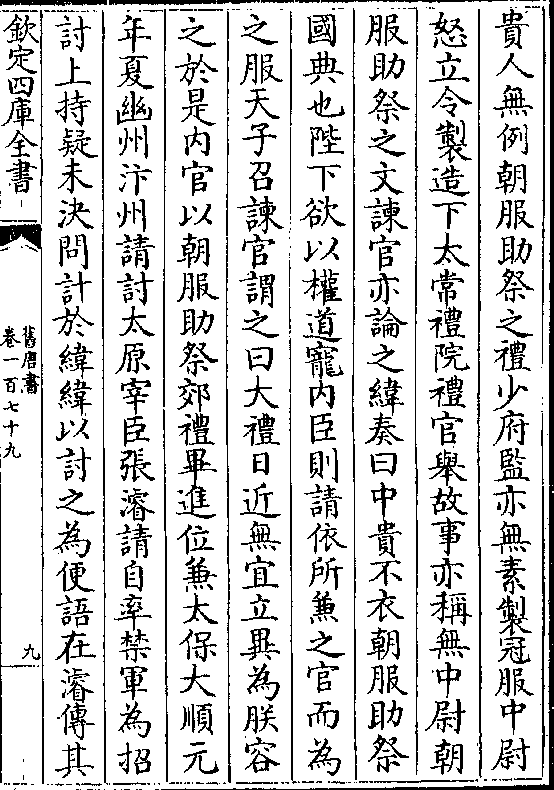 貴人無例朝服助祭之禮少府監亦無素製冠服中尉
怒立令製造下太常禮院禮官舉故事亦稱無中尉朝
服助祭之文諫官亦論之緯奏曰中貴不衣朝服助祭
國典也陛下欲以權道寵内臣則請依所兼之官而為
之服天子召諫官謂之曰大禮日近無宜立異為朕容
之於是内官以朝服助祭郊禮畢進位兼太保大順元
年夏幽州汴州請討太原宰臣張濬請自率禁軍為招
討上持疑未決問計於緯緯以討之為便語在濬傳其
欽定四庫全書
舊唐書
卷一百七十九
九